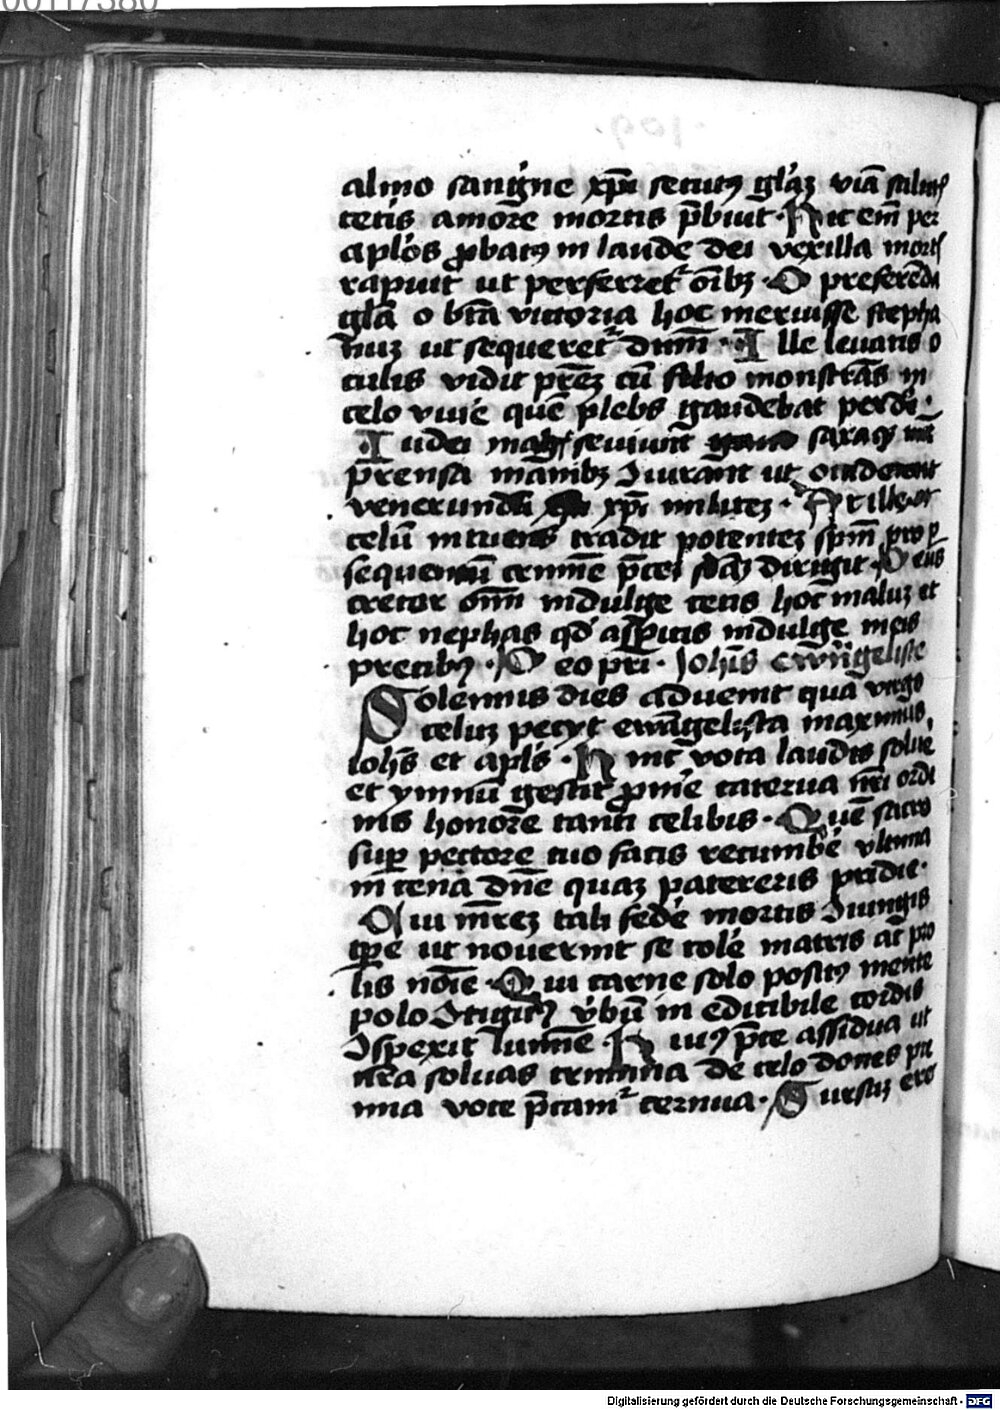 00117380
almo sangͥne xp̄i secutꝰ glāȝ viā salutꝭ
ceteris amore mortis p̄buit · Hic em̄ per
aplōs ꝓbatꝰ in laude dei vexilla mortꝭ
rapuit ut perferret᷑ oībꝫ · O preferēda
glā o btā victoria hoc meruisse stepha
nuȝ ut sequeret᷑ dn̄m · Ille leuatis o
culis vidit prēȝ cū monstrās in
celo viuē̄ quē plebs gaudebat perdi ·
Iudei mag seuiunt saxaqꝫ
prensa manibꝫ Jcurāt ut occiderent
venerund xp̄i militeȝ · At ille
celū intuens tradit potenteȝ sp̄m pro ꝑ
sequenciū crimīe p̄ces dirigit · Deus
cretor oīm indulge ceteris hoc maluȝ et
hoc nephas qd̄ aspicis indulge meis
precibꝰ · Deo pr̄i · Johīs ewāgeliste
Solemnis dies aduenit qua virgo
celuȝ pecyt ewāgelista maximus,
iohīs et aplūs · Hinc vota laudis soluē
et ymnū gestit ꝓmē caterua nr̄i ordi
nis honore tanti celibis · Quē sacro
suꝑ pectore tuo facis recumbē vltima
in cena dn̄e quaȝ patereris pridie ·
Qui mr̄eȝ tali fedē mortis Jungis
tp̄e ut nouerint se colē matris at pro
lis noīe · Qui carne solo positꝰ mente
polo Jtigit v̄bū in edicibile cordis
Jspexit lumīe Huiꝰ p̄ce assidua ut
nr̄a soluas crimina de celo dones
mna voce p̄cam᷑ cernua · Sursuȝ
Digitalisierung gefördert durch die Deutsche Forschungsgemeinschaft · DFG